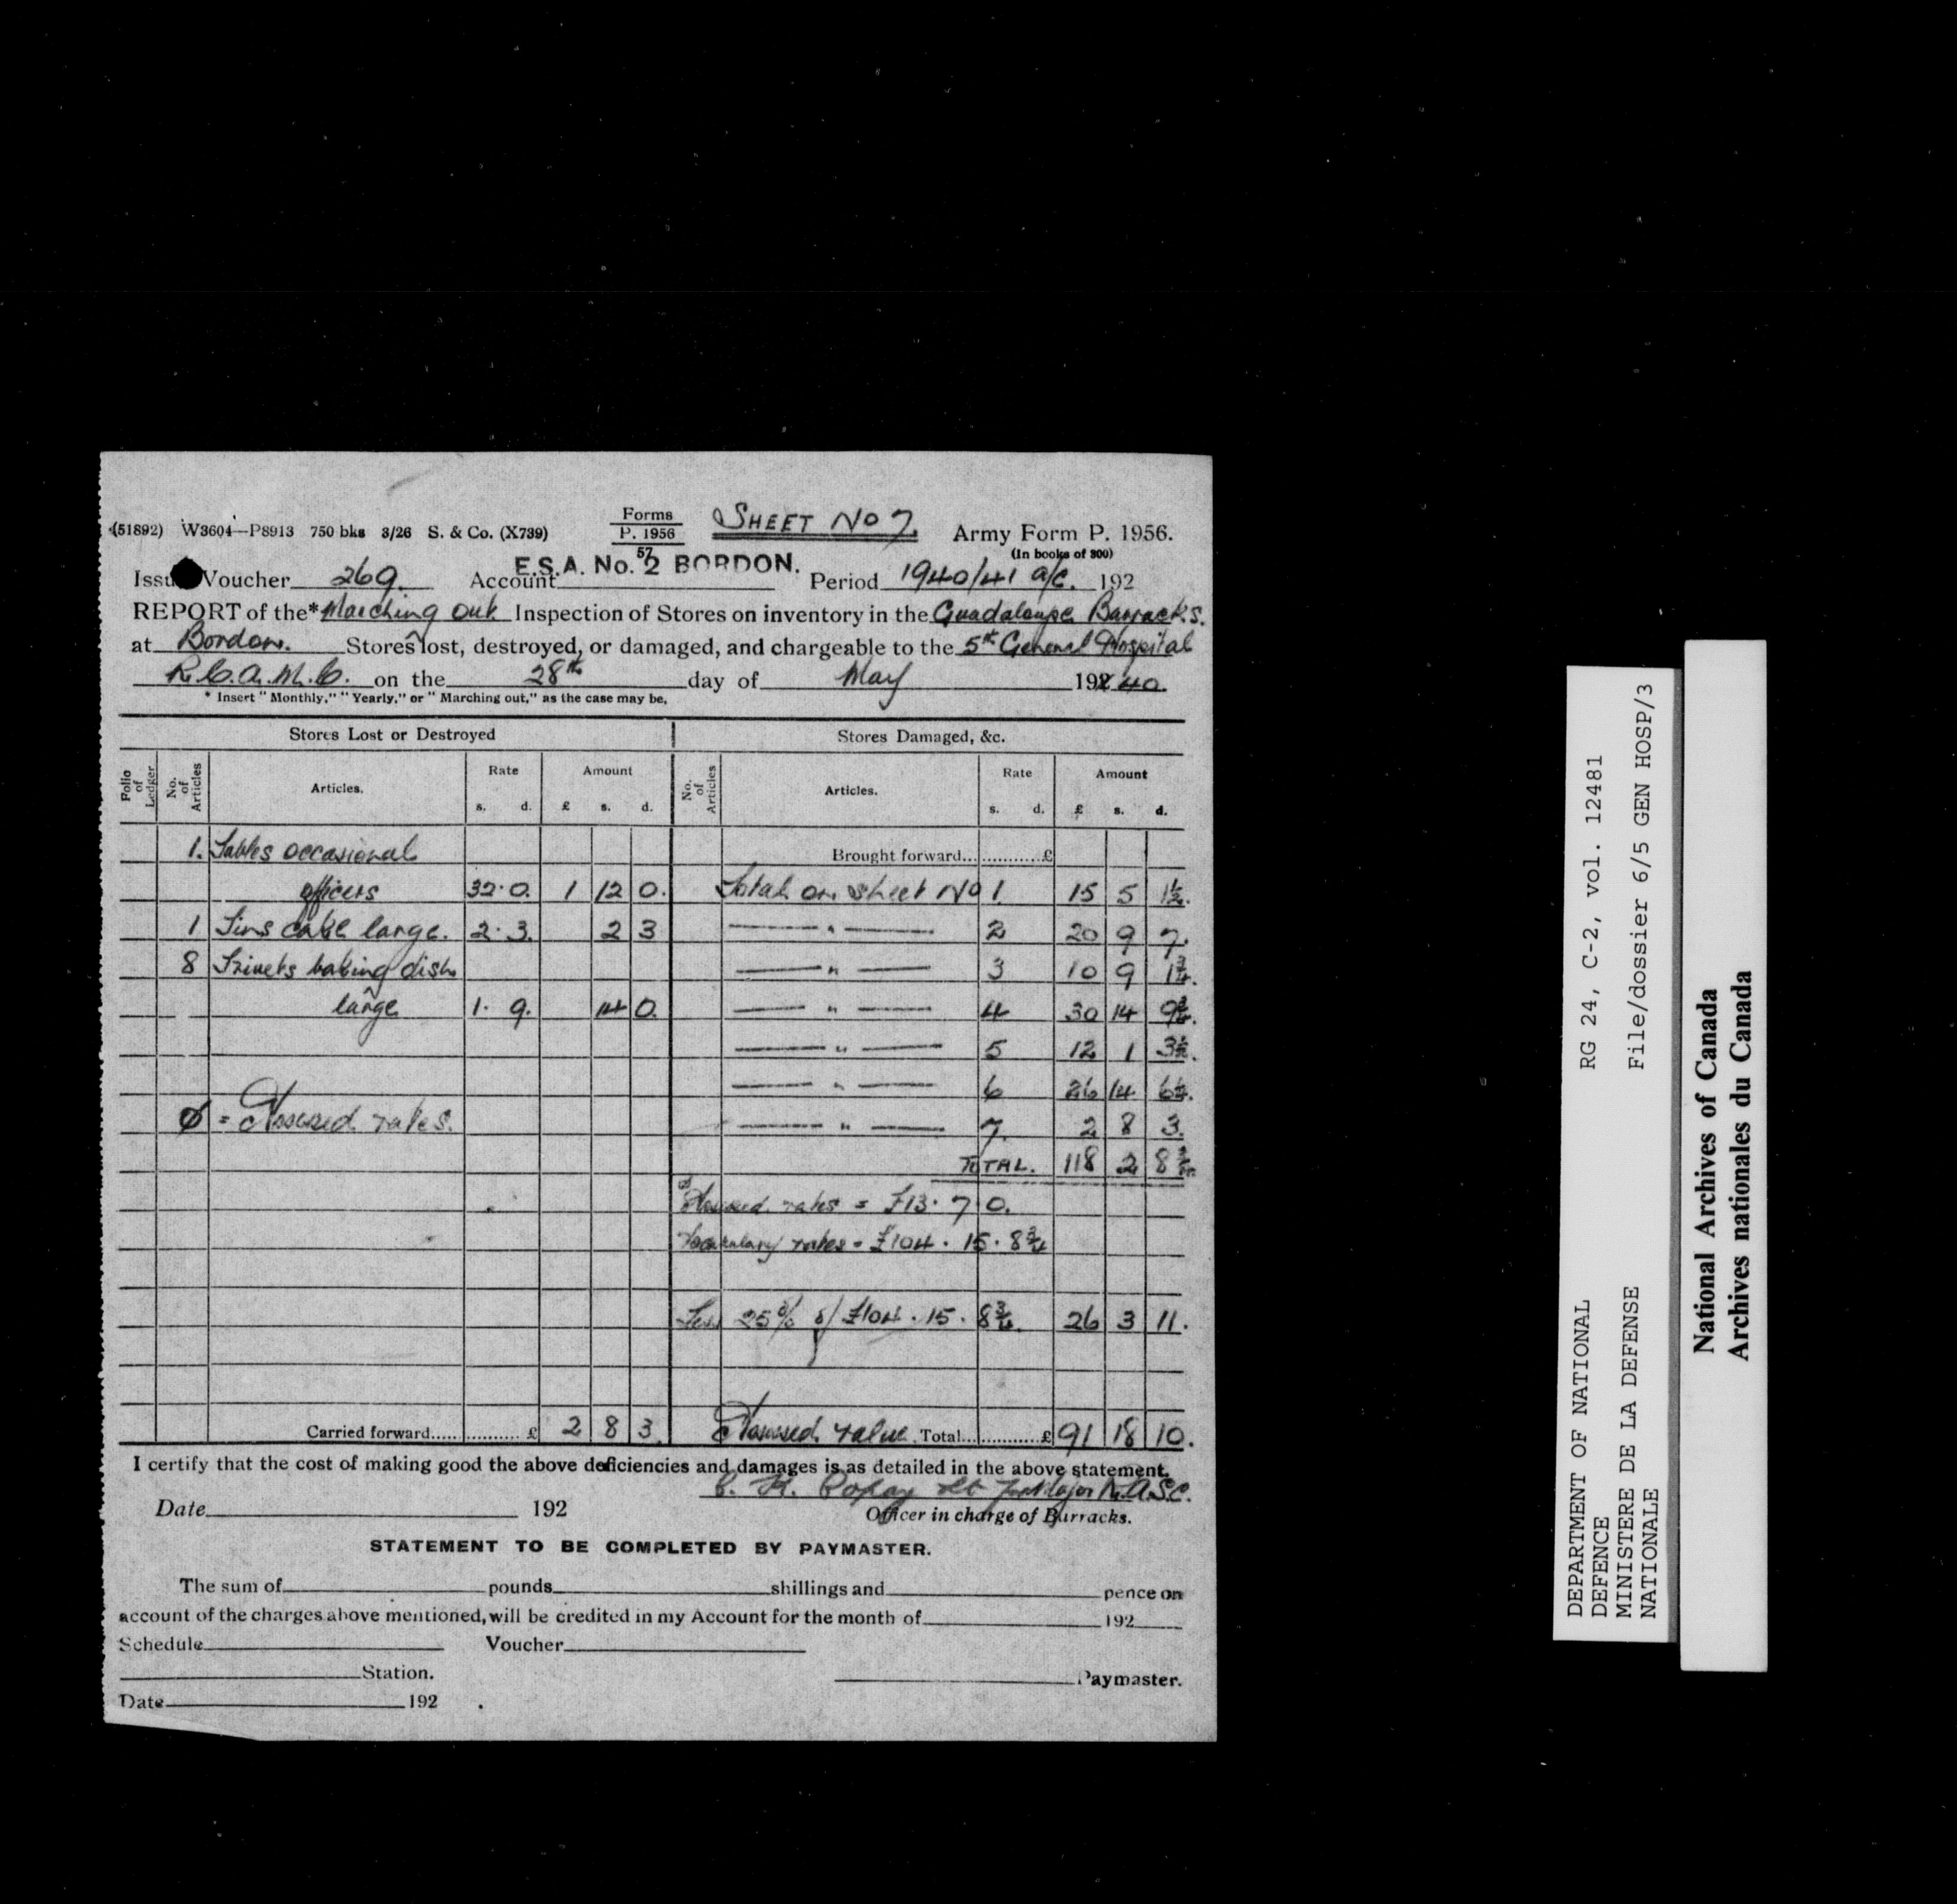 (51892) W3604—P8913 750 bks 3/26 S. & Co. (X739) Forms P. 1956 57 SHEET No 7. Army Form P. 1956.
(In books of 300)
Issu Voucher 269. Account E.S.A. No. 2 BORDON. Period 1940/41 a/c. 192
REPORT of the* Marching Out Inspection of Stores on inventory in the Guadaloupe Barracks.
at Bordon. Stores lost, destroyed, or damaged, and chargeable to the 5th General Hospital
R.C.A.M.C. on the 28th day of May 192 40.
* Insert "Monthly," "Yearly," or "Marching out," as the case may be.
Stores Lost or Destroyed Stores Damaged, &c.
Folio of Ledger No. of Articles Articles. Rate s. d. Amount £ s. d. No. of Articles Articles. Rate s. d. Amount £ s. d.
1. Tables occasional Brought forward... ............£
officers 32.0. 1 12 0. Total on sheet No 1. 15 5 1½.
1 Tins cake large. 2.3. 2 3 —— " —— 2 20 9 7.
8 Trivets baking dish —— " —— 3 10 9 1¾.
large 1. 9. 14 0. —— " —— 4 30 14 9¾.
—— " —— 5 12 1 3½.
—— " —— 6 26 14
Ø = Assessed rates. —— " —— 7. 2 8 3.
TOTAL. 118 2 8¾.
Assessed rates = £13. 7 0.
Vocabulary rates = £104. 15. 8¾
Less 25% of £104. 15. 8¾. 26 3 11.
Carried forward..... .......... £ 2 8 3. Assessed value. Total... ............£ 91 18 10.
I certify that the cost of making good the above deficiencies and damages is as detailed in the above statement.
Lt for Major R.A.S.C.
Date 192 Officer in charge of Barracks.
STATEMENT TO BE COMPLETED BY PAYMASTER.
The sum of pounds shillings and pence on
account of the charges above mentioned, will be credited in my Account for the month of 192
Schedule Voucher
Station. Paymaster.
Date 192 .
DEPARTMENT OF NATIONAL RG 24, C-2, vol. 12481
DEFENCE
MINISTERE DE LA DEFENSE File/dossier 6/5 GEN HOSP/3
NATIONALE
National Archives of Canada
Archives nationales du Canada